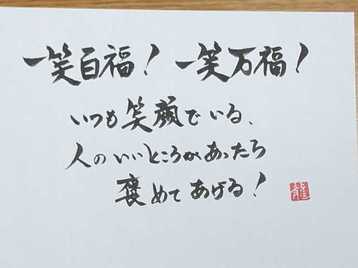 一笑百福！ 一笑万福！
いつも笑顔でいる、
人のいいところがあったら
褒めてあげる！